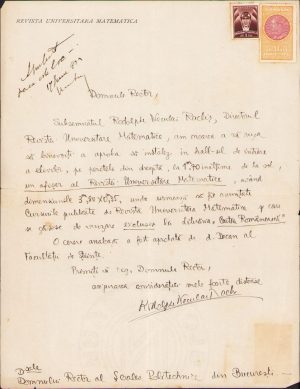 REVISTA UNIVERSITARA MATEMATICA
Domnule Rector,
Subsemnatul Rodolphe Niculai Raclis, Directorul
Revistei Universitare Matematice, am onoarea a vă ruga
să binevoiți a aproba să instalez în hall-ul de intrare
a elevilor, pe peretele din dreapta, la 1,70 înălțime de la sol,
un afișor al Revistei Universitare Matematice, având
dimensiunile
Cursurile publicate de Revista Universitara Matematica și care
se găsesc de vânzare exclusiv la Libraria "Cartea Românească"
O cerere analoagă a fost aprobată de d. Decan al
Facultății de Științe.
Primiți vă rog, Domnule Rector,
asigurarea considerațiunii mele foarte distinse.
D-sale
Domnului Rector al Școalei Politechnice din București